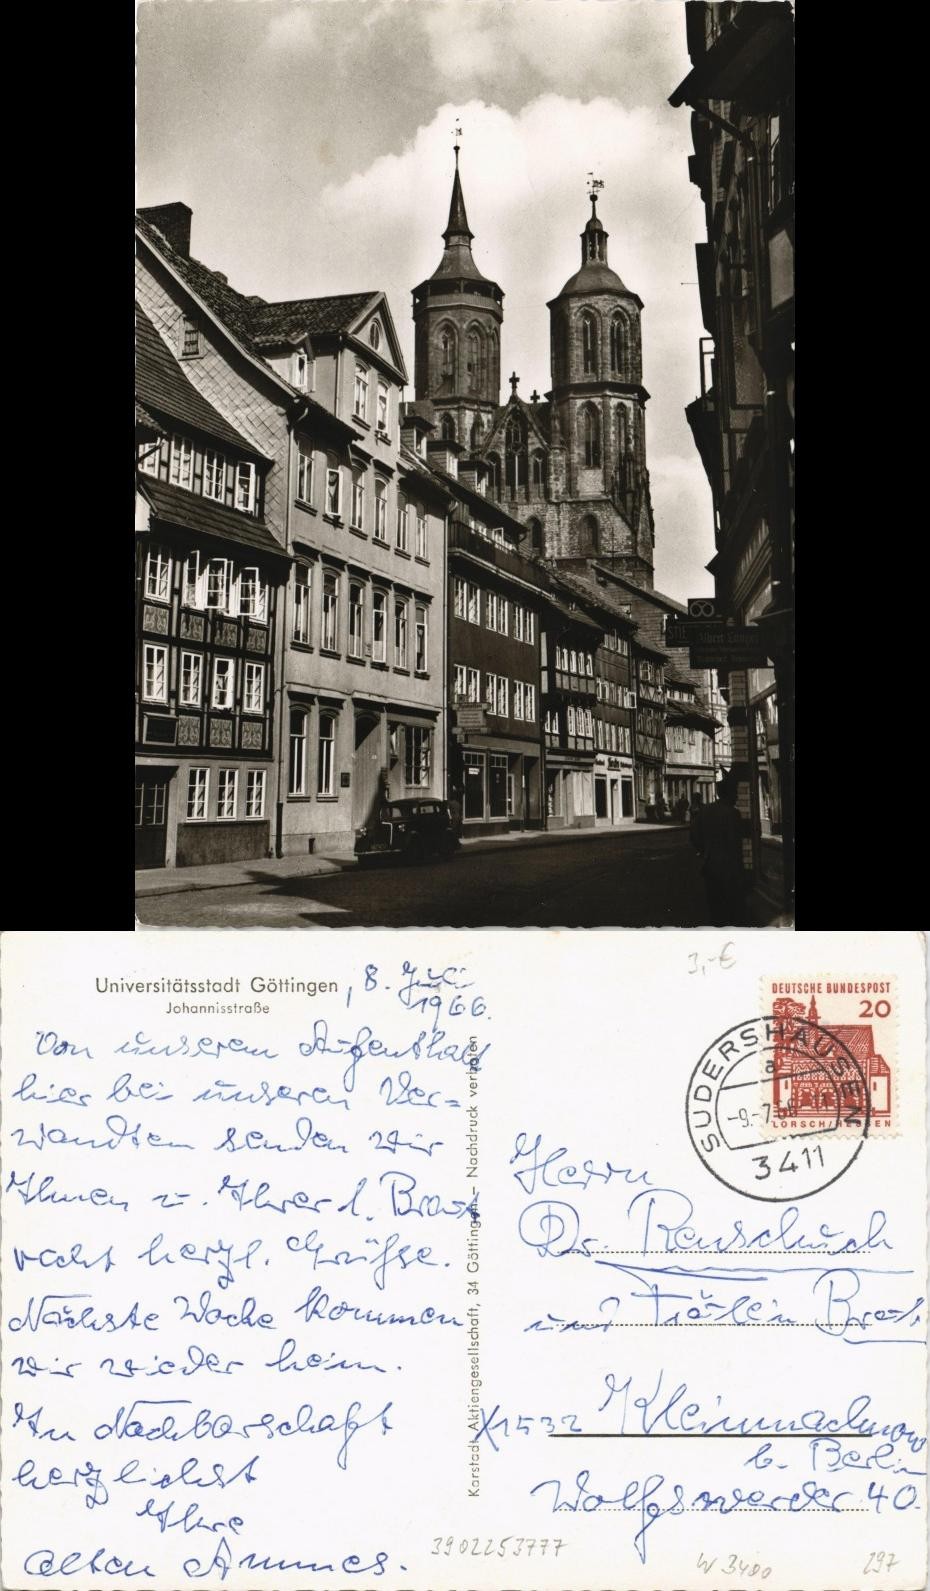 STIE
Albert Langer
Universitätsstadt Göttingen
Johannisstraße
, 8. Juli
1966.
Von unserem Aufenthalt
hier bei unseren Ver=
wandten senden wir
Ihnen u. Ihrer l. Braut
recht herzl. Grüße.
Nächste Woche kommen
wir wieder heim.
In Nachbarschaft
herzlichst
Ihre
alten Ammes.
Karstadt Aktiengesellschaft, 34 Göttingen – Nachdruck verboten
3,-€
DEUTSCHE BUNDESPOST
20
LORSCH/HESSEN
SUDERSHAUSEN
a
-9.-7.66-11
3411
Herrn
Dr. Renschuch
und Fräulein Braut
X1532 Kleinmachnow
b. Berlin
Wolfswerder 40.
3902253777
W 3400
297